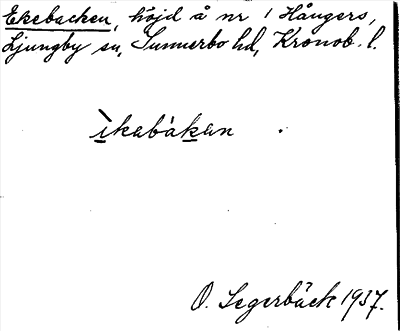 Ekebacken, höjd å nr 1 Hångers,
Ljungby sn, Sunnerbo hd, Kronob. l.
ìkabàkan
O. Segerbäck 1937.